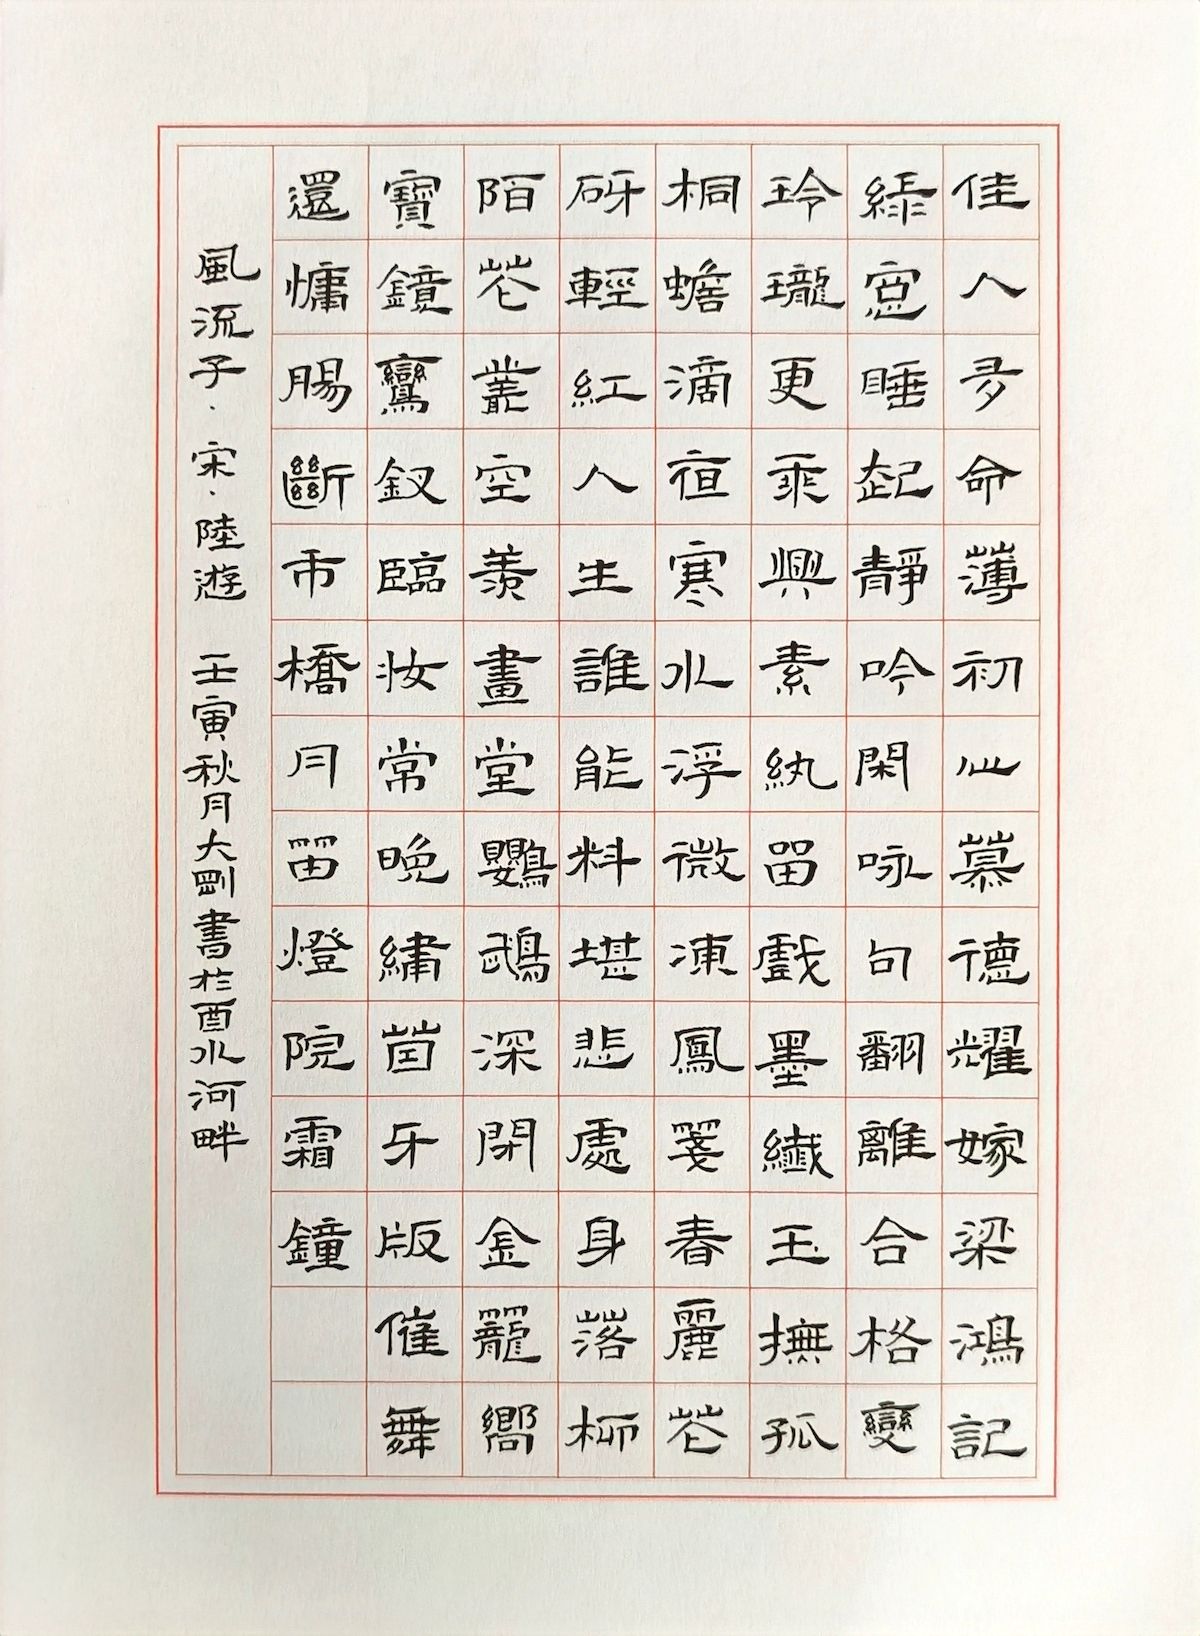 佳人多命薄初心慕德耀嫁梁鴻記
綠窓睡起靜吟閑咏句翻離合格變
玲瓏更乘興素紈留戲墨纎玉撫孤
桐蟾滴夜寒水浮微凍鳳箋春麗花
砑輕紅人生誰能料堪悲處身落柳
陌花叢空羨畫堂鸚鵡深閉金籠嚮
寶鏡鸞釵臨妝常晚繡茵牙版催舞
還慵腸斷市橋月笛燈院霜鐘
風流子·宋·陸遊 壬寅秋月大剛書於酉水河畔